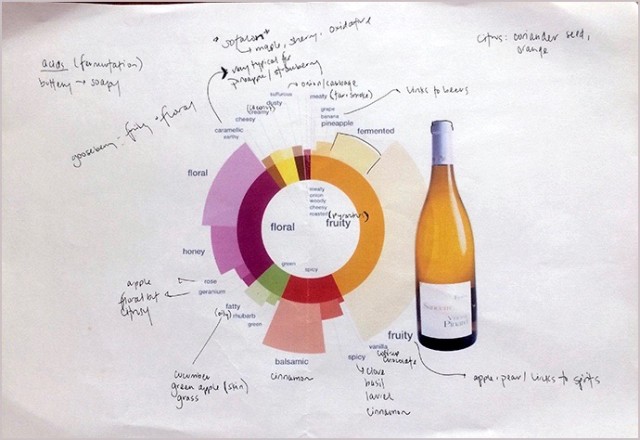 "sotalon"
↳ maple, sherry, oxidative
citrus: coriander seed,
orange
acids (fermentation)
buttery → soapy
very typical for
pineapple / strawberry
→ onion/cabbage
sulfurous
dusty
creamy
cheesy
meaty
grape
banana
pineapple
links to beers
caramelic
earthy
fermented
gooseberry: fruity + floral
floral
meaty
onion
woody
cheesy
roasted
floral
fruity
honey
green
spicy
apple
floral but
citrusy
rose
geranium
fatty
(oily) rhubarb
green
fruity
vanilla
coffee
chocolate
balsamic
cinnamon
spicy
↳ clove
basil
laurel
cinnamon
cucumber
green apple (skin)
grass
apple, pear / links to spirits